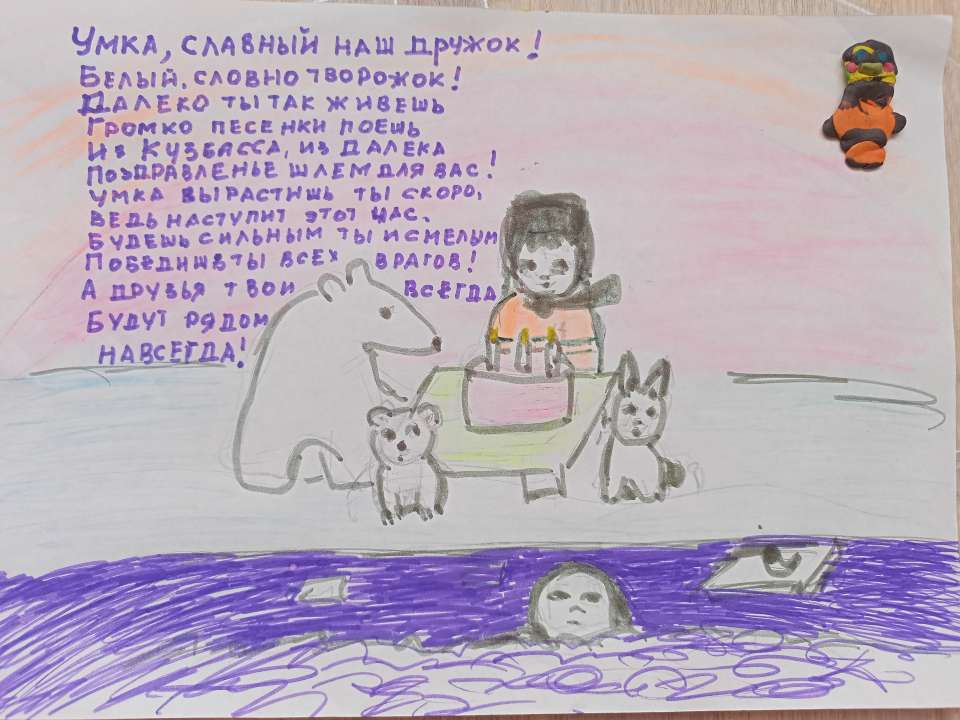 Умка, славный наш дружок!
Белый, словно творожок!
Далеко ты так живешь
Громко песенки поешь
Из Кузбасса, из далека
Поздравленье шлем для вас!
Умка вырастишь ты скоро,
Ведь наступит этот час.
Будешь сильным ты и смелым
Победишь ты всех врагов!
А друзья твои всегда
Будут рядом
навсегда!